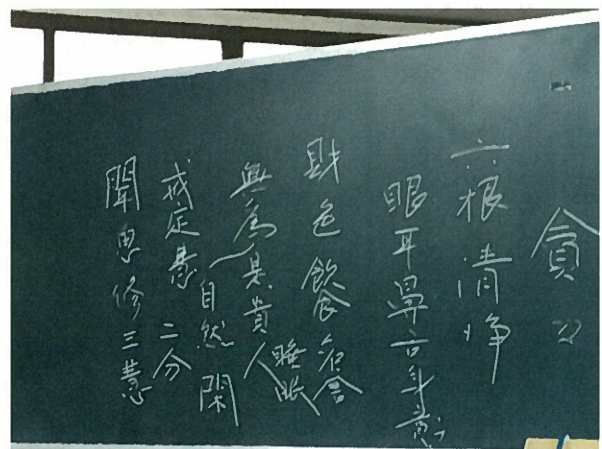 貪
六根清净
眼耳鼻舌身意
財色飲食名譽
睡眠
無為是貴人
自然閑
戒定慧 二分
聞思修三慧